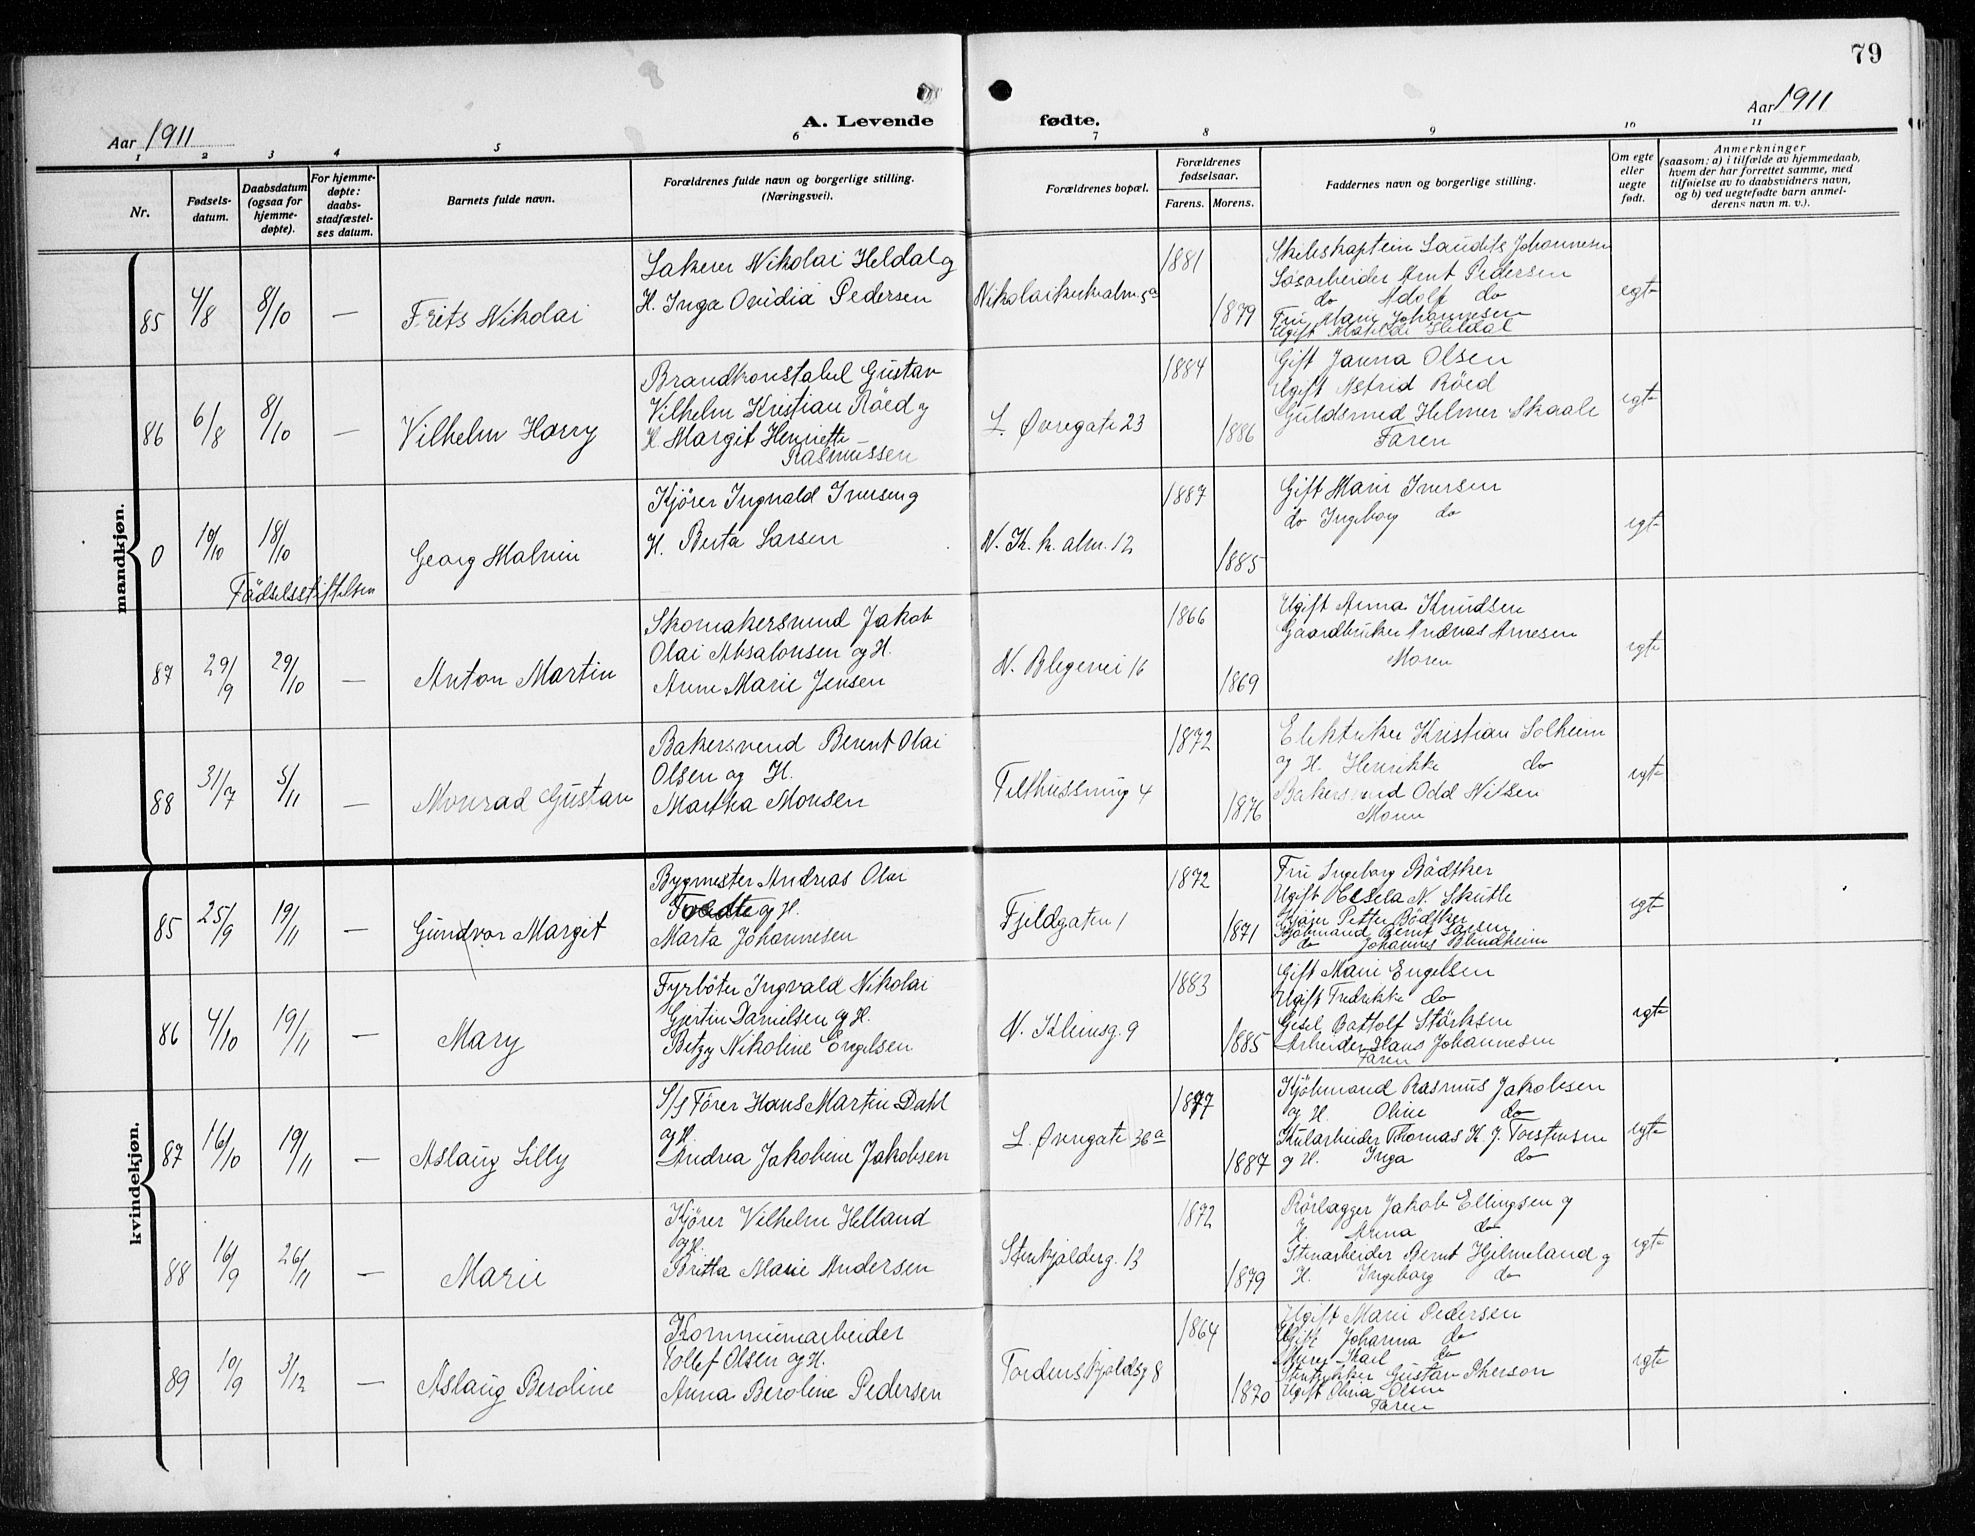 79
Aar 1911
A. Levende fødte.
Aar 1911
1 2 3 4 5 6 7 8 9 10 11
Nr.
Fødsels-
datum.
Daabsdatum
(ogsaa for
hjemme-
døpte).
For hjemme-
døpte:
daabs-
stadfæstel-
ses datum.
Barnets fulde navn.
Forældrenes fulde navn og borgerlige stilling.
(Næringsvei).
Forældrenes bopæl.
Forældrenes
fødselsaar.
Farens. Morens.
Faddernes navn og borgerlige stilling.
Om egte
eller
uegte
født.
Anmerkninger
(saasom: a) i tilfælde av hjemmedaab,
hvem der har forrettet samme, med
tilføielse av to daabsvidners navn,
og b) ved uegtefødte barn anmel-
derens navn m. v.).
mandkjøn.
85 4/8 8/10 — Frits Nikolai
Sakerer Nikolai Heldal og
H. Inga Ovidia Pedersen
Nikolaikirkealm. 5a
1881
1879
Skibskaptein Laudits Johannesen
Løsarbeider Arnt Pedersen
do Adolf do
Fru Marie Johannesen
Ugift Matilde Heldal
egte
86 6/8 8/10 — Vilhelm Harry
Brandkonstabel Gustav
Vilhelm Kristian Röed og
H. Margit Henriette
Rasmussen
L. Øvregate 23
1884
1886
Gift Janna Olsen
Ugift Astrid Röed
Guldsmed Helmer Skaale
Faren
egte
0 10/10 18/10 Georg Malvin
Födselsstiftelsen
Kjörer Ingvald Iversen og
H. Berta Larsen
N. K. k. alm. 12
1887
1885
Gift Marie Iversen
do Ingeborg do
egte
87 29/9 29/10 — Anton Martin
Skomakersvend Jakob
Olai Absalonsen og H.
Anne Marie Jensen
N. Blegevei 16
1866
1869
Ugift Anna Knudsen
Gaardbruker Andreas Arnesen
Moren
egte
88 31/7 5/11 — Monrad Gustav
Bakersvend Berent Olai
Olsen og H.
Martha Monsen
Telthussmug 4
1872
1876
Elektriker Kristian Solheim
og H. Henrikke do
Bakersvend Odd Nilsen
Moren
egte
kvindekjøn.
85 25/9 19/11 — Gundvor Margit
Bygmester Andreas Olai
Tvedte og H.
Marta Johannesen
Fjeldgaten 1
1872
1871
Fru Ingeborg Bödtker
Ugift Gesela N. Skutle
Kjörer Petter Bödtker
Kjöbmand Bernt Larsen
do Johannes Blindheim
egte
86 4/10 19/11 — Mary
Fyrböter Ingvald Nikolai
Gjertin Danielsen og H.
Betzy Nikoline Engelsen
N. Kleivsg. 9
1883
1885
Gift Marie Engelsen
Ugift Fredrikke do
Gesel Bottolf Störksen
Arbeider Hans Johannesen
Faren
egte
87 16/10 19/11 — Aslaug Lilly
S/S Förer Hans Martin Dahl
og H.
Andrea Jakobine Jakobsen
L. Øvregate 36a
1877
1887
Kjöbmand Rasmus Jakobsen
og H. Oline do
Kularbeider Thomas H. J. Torstensen
og H. Inga do
egte
88 16/9 26/11 — Marie
Kjörer Vilhelm Helland
og H.
Britta Marie Andersen
Stenkjelderg. 13
1872
1879
Rörlægger Jakob Ellingsen og
H. Anna do
Stenarbeider Bernt Hjelmeland og
H. Ingeborg do
egte
89 10/9 3/12 — Aslaug Beroline
Kommunearbeider
Tollef Olsen og H.
Anna Beroline Pedersen
Tordenskjoldsg 8
1864
1870
Ugift Marie Pedersen
Ugift Johanna do
Murer Karl do
Stentrykker Gustav Pherson
Ugift Olivia Olsen
Faren
egte